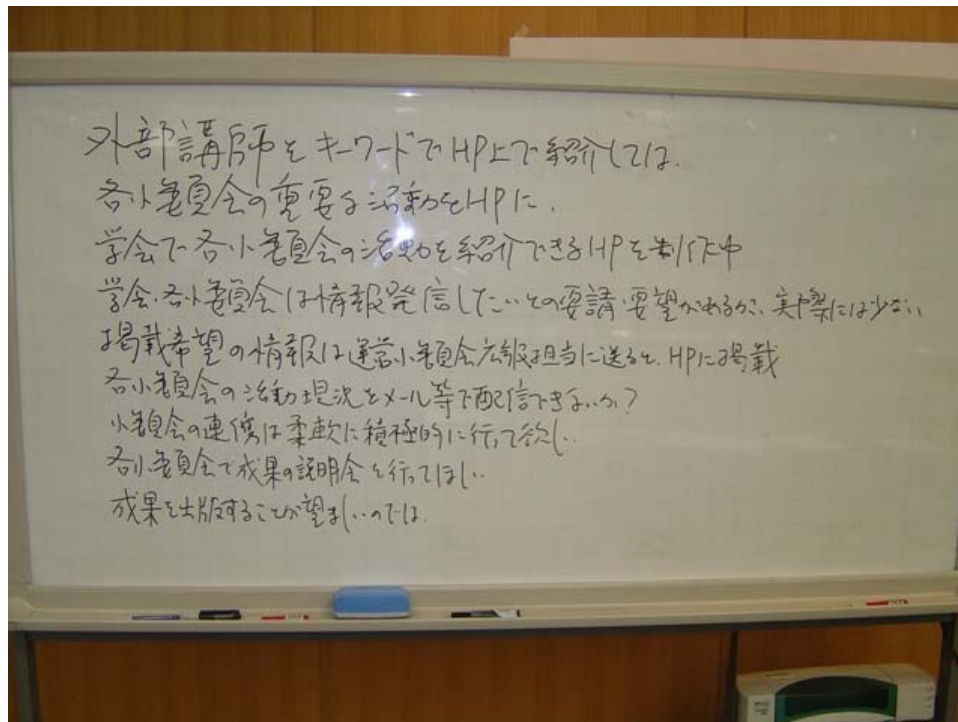 外部講師をキーワードでHP上で紹介しては.
各小委員会の重要な活動をHPに.
学会で各小委員会の活動を紹介できるHPを制作中
学会.各小委員会は情報発信したいとの要請・要望があるが、実際には少ない
掲載希望の情報は運営小委員会広報担当に送ると、HPに掲載
各小委員会の活動現況をメール等で配信できないか?
小委員会の連携は柔軟に積極的に行って欲しい.
各小委員会で成果の説明会を行ってほしい.
成果を出版することが望ましいのでは.